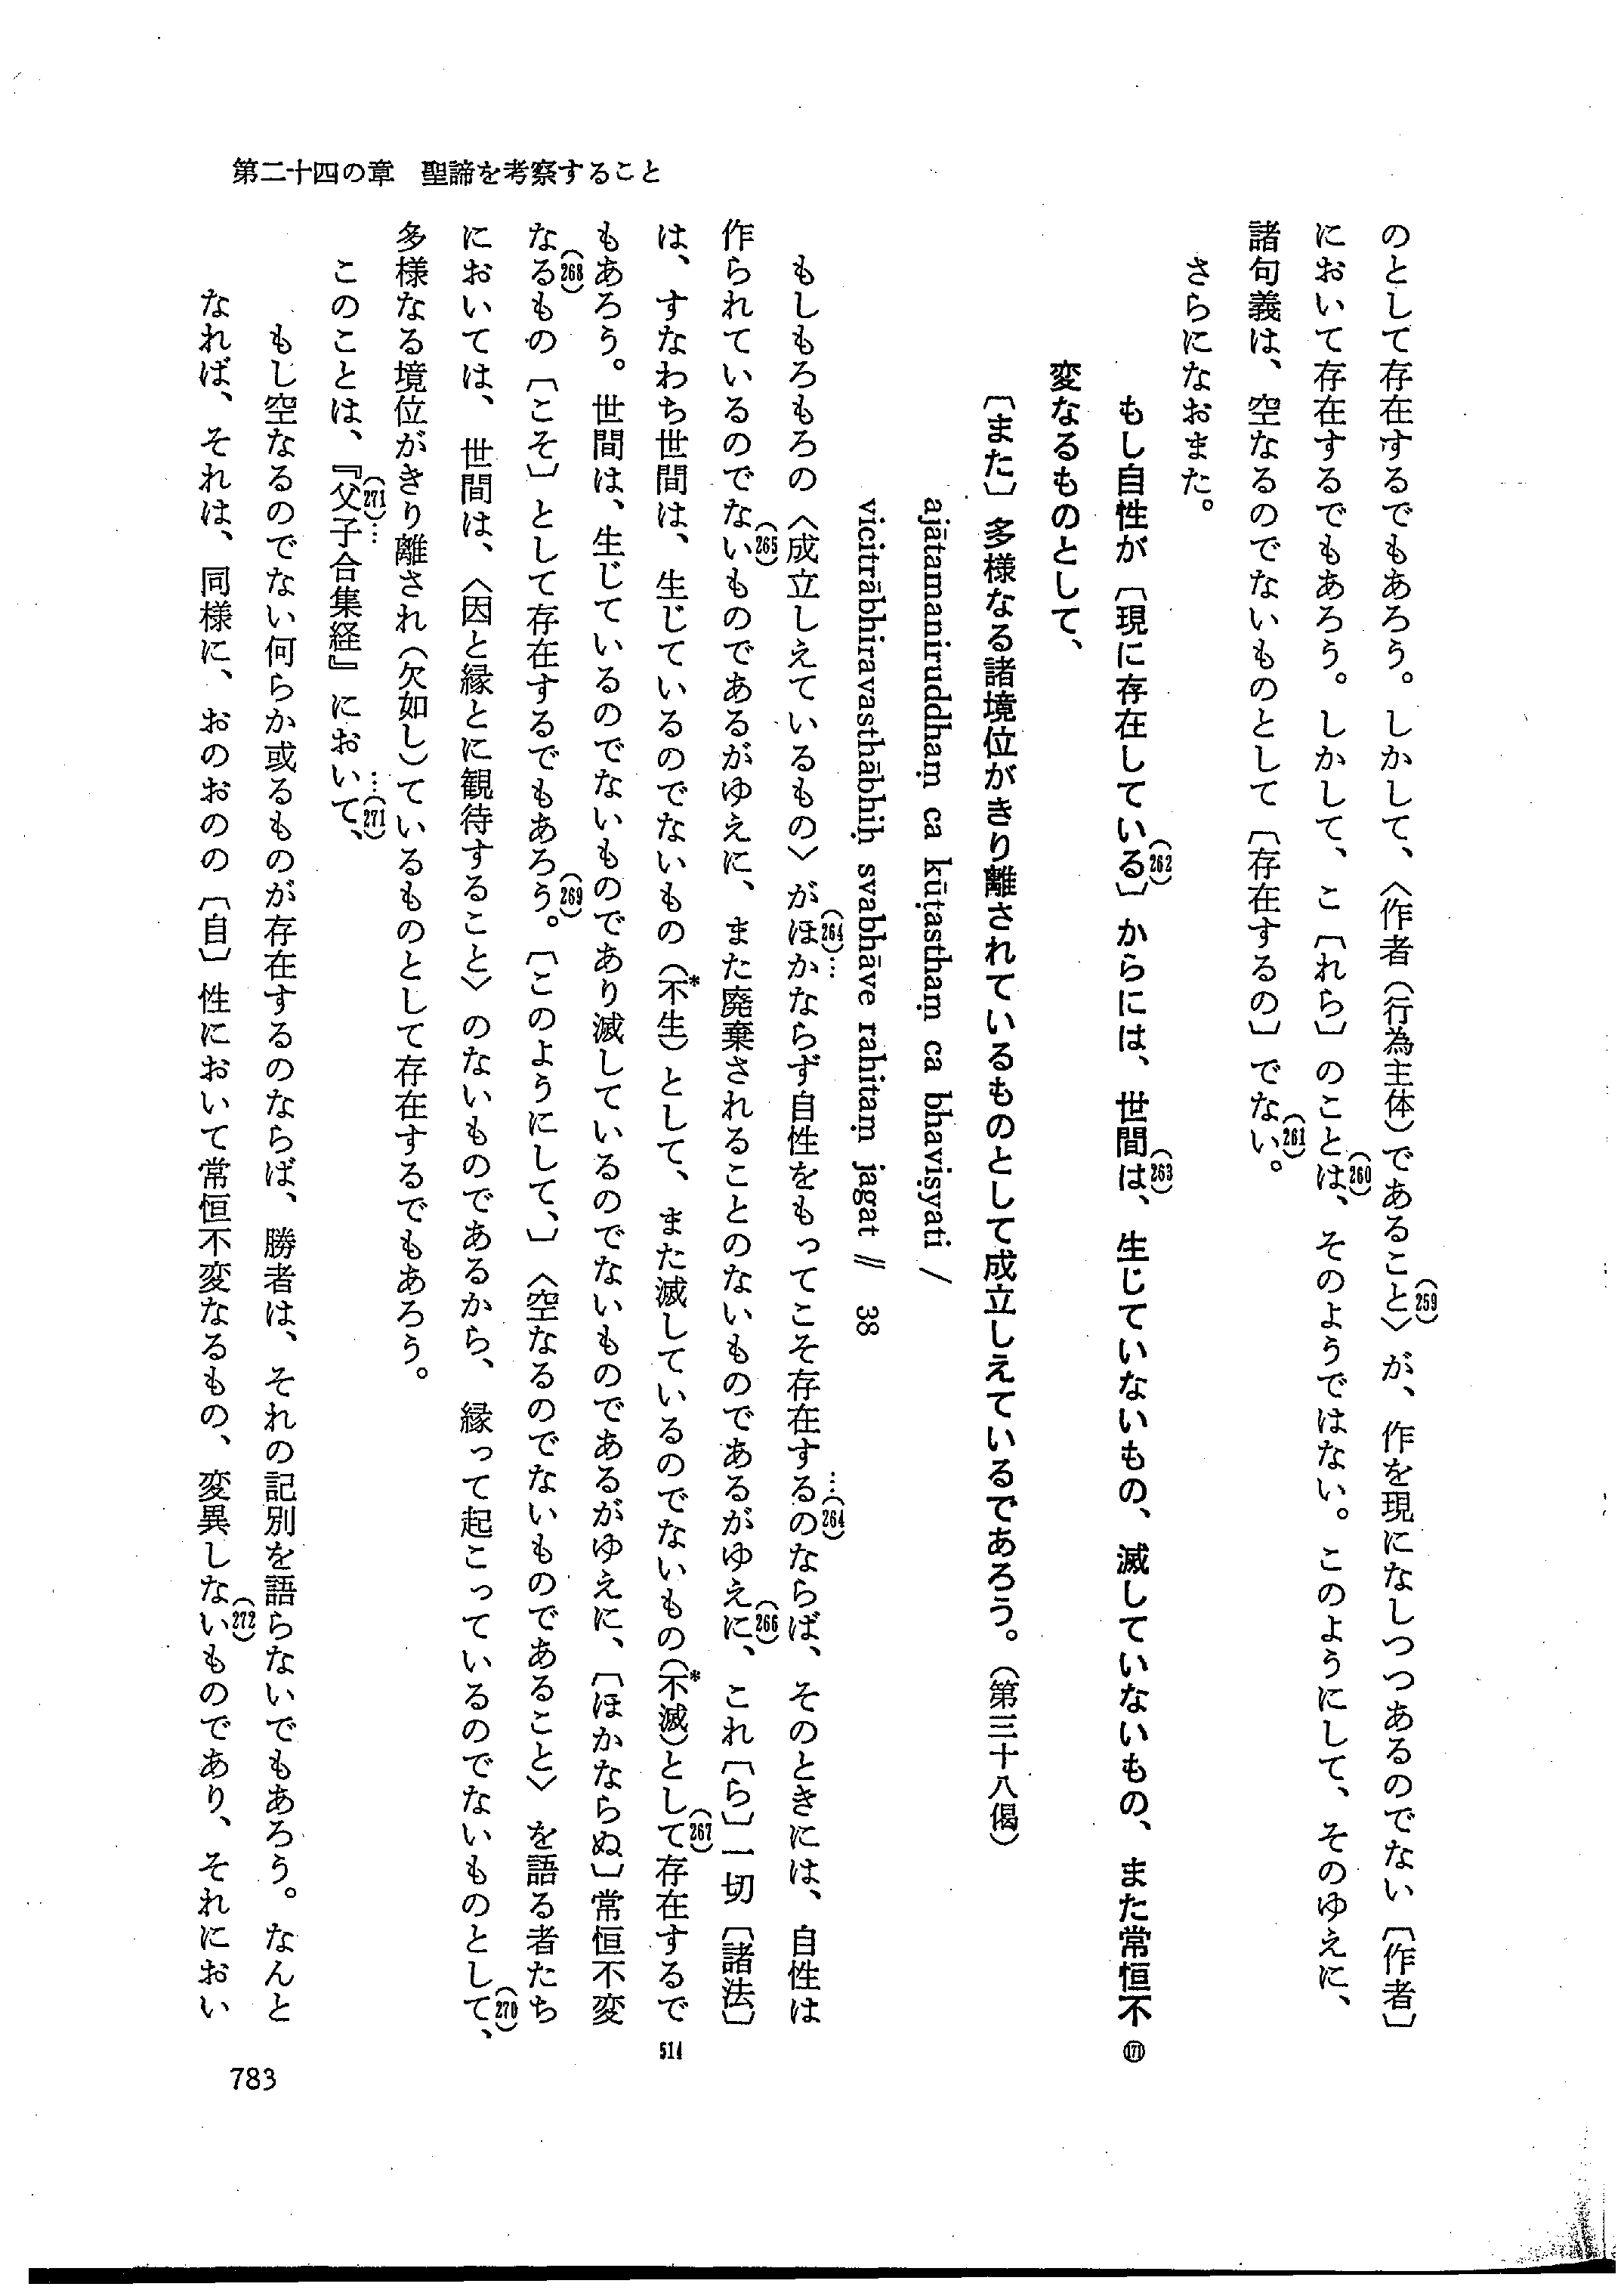 第二十四の章　聖諦を考察すること
のとして存在するでもあろう。しかして、〈作者（行為主体）であること〉(259)が、作を現になしつつあるのでない〔作者〕
において存在するでもあろう。しかして、こ〔れら〕のことは(260)、そのようではない。このようにして、そのゆえに、
諸句義は、空なるのでないものとして〔存在するの〕でない(261)。
さらになおまた。
もし自性が〔現に存在している(262)〕からには、世間は(263)、生じていないもの、滅していないもの、また常恒不 (171)
変なるものとして、
〔また〕多様なる諸境位がきり離されているものとして成立しえているであろう。（第三十八偈）
ajātamaniruddhaṃ ca kūṭasthaṃ ca bhaviṣyati /
vicitrābhiravasthābhiḥ svabhāve rahitaṃ jagat // 38
もしもろもろの〈成立しえているもの〉がほ(264)…かならず自性をもってこそ存在するの…(264)ならば、そのときには、自性は
作られているのでない(265)ものであるがゆえに、また廃棄されることのないものであるがゆえに(266)、これ〔ら〕一切〔諸法〕
は、すなわち世間は、生じているのでないもの（不生*）として、また滅しているのでないもの（不滅*）として(267)存在するで 514
もあろう。世間は、生じているのでないものであり滅しているのでないものであるがゆえに、〔ほかならぬ〕常恒不変
なる(268)もの〔こそ〕として存在するでもあろう(269)。〔このようにして、〕〈空なるのでないものであること〉を語る者たち
においては、世間は、〈因と縁とに観待すること〉のないものであるから、縁って起こっているのでないものとして(270)、
多様なる境位がきり離され（欠如し）ているものとして存在するでもあろう。
このことは、(271)…『父子合集経』において…(271)、
もし空なるのでない何らか或るものが存在するのならば、勝者は、それの記別を語らないでもあろう。なんと
なれば、それは、同様に、おのおのの〔自〕性において常恒不変なるもの、変異しない(272)ものであり、それにおい
783